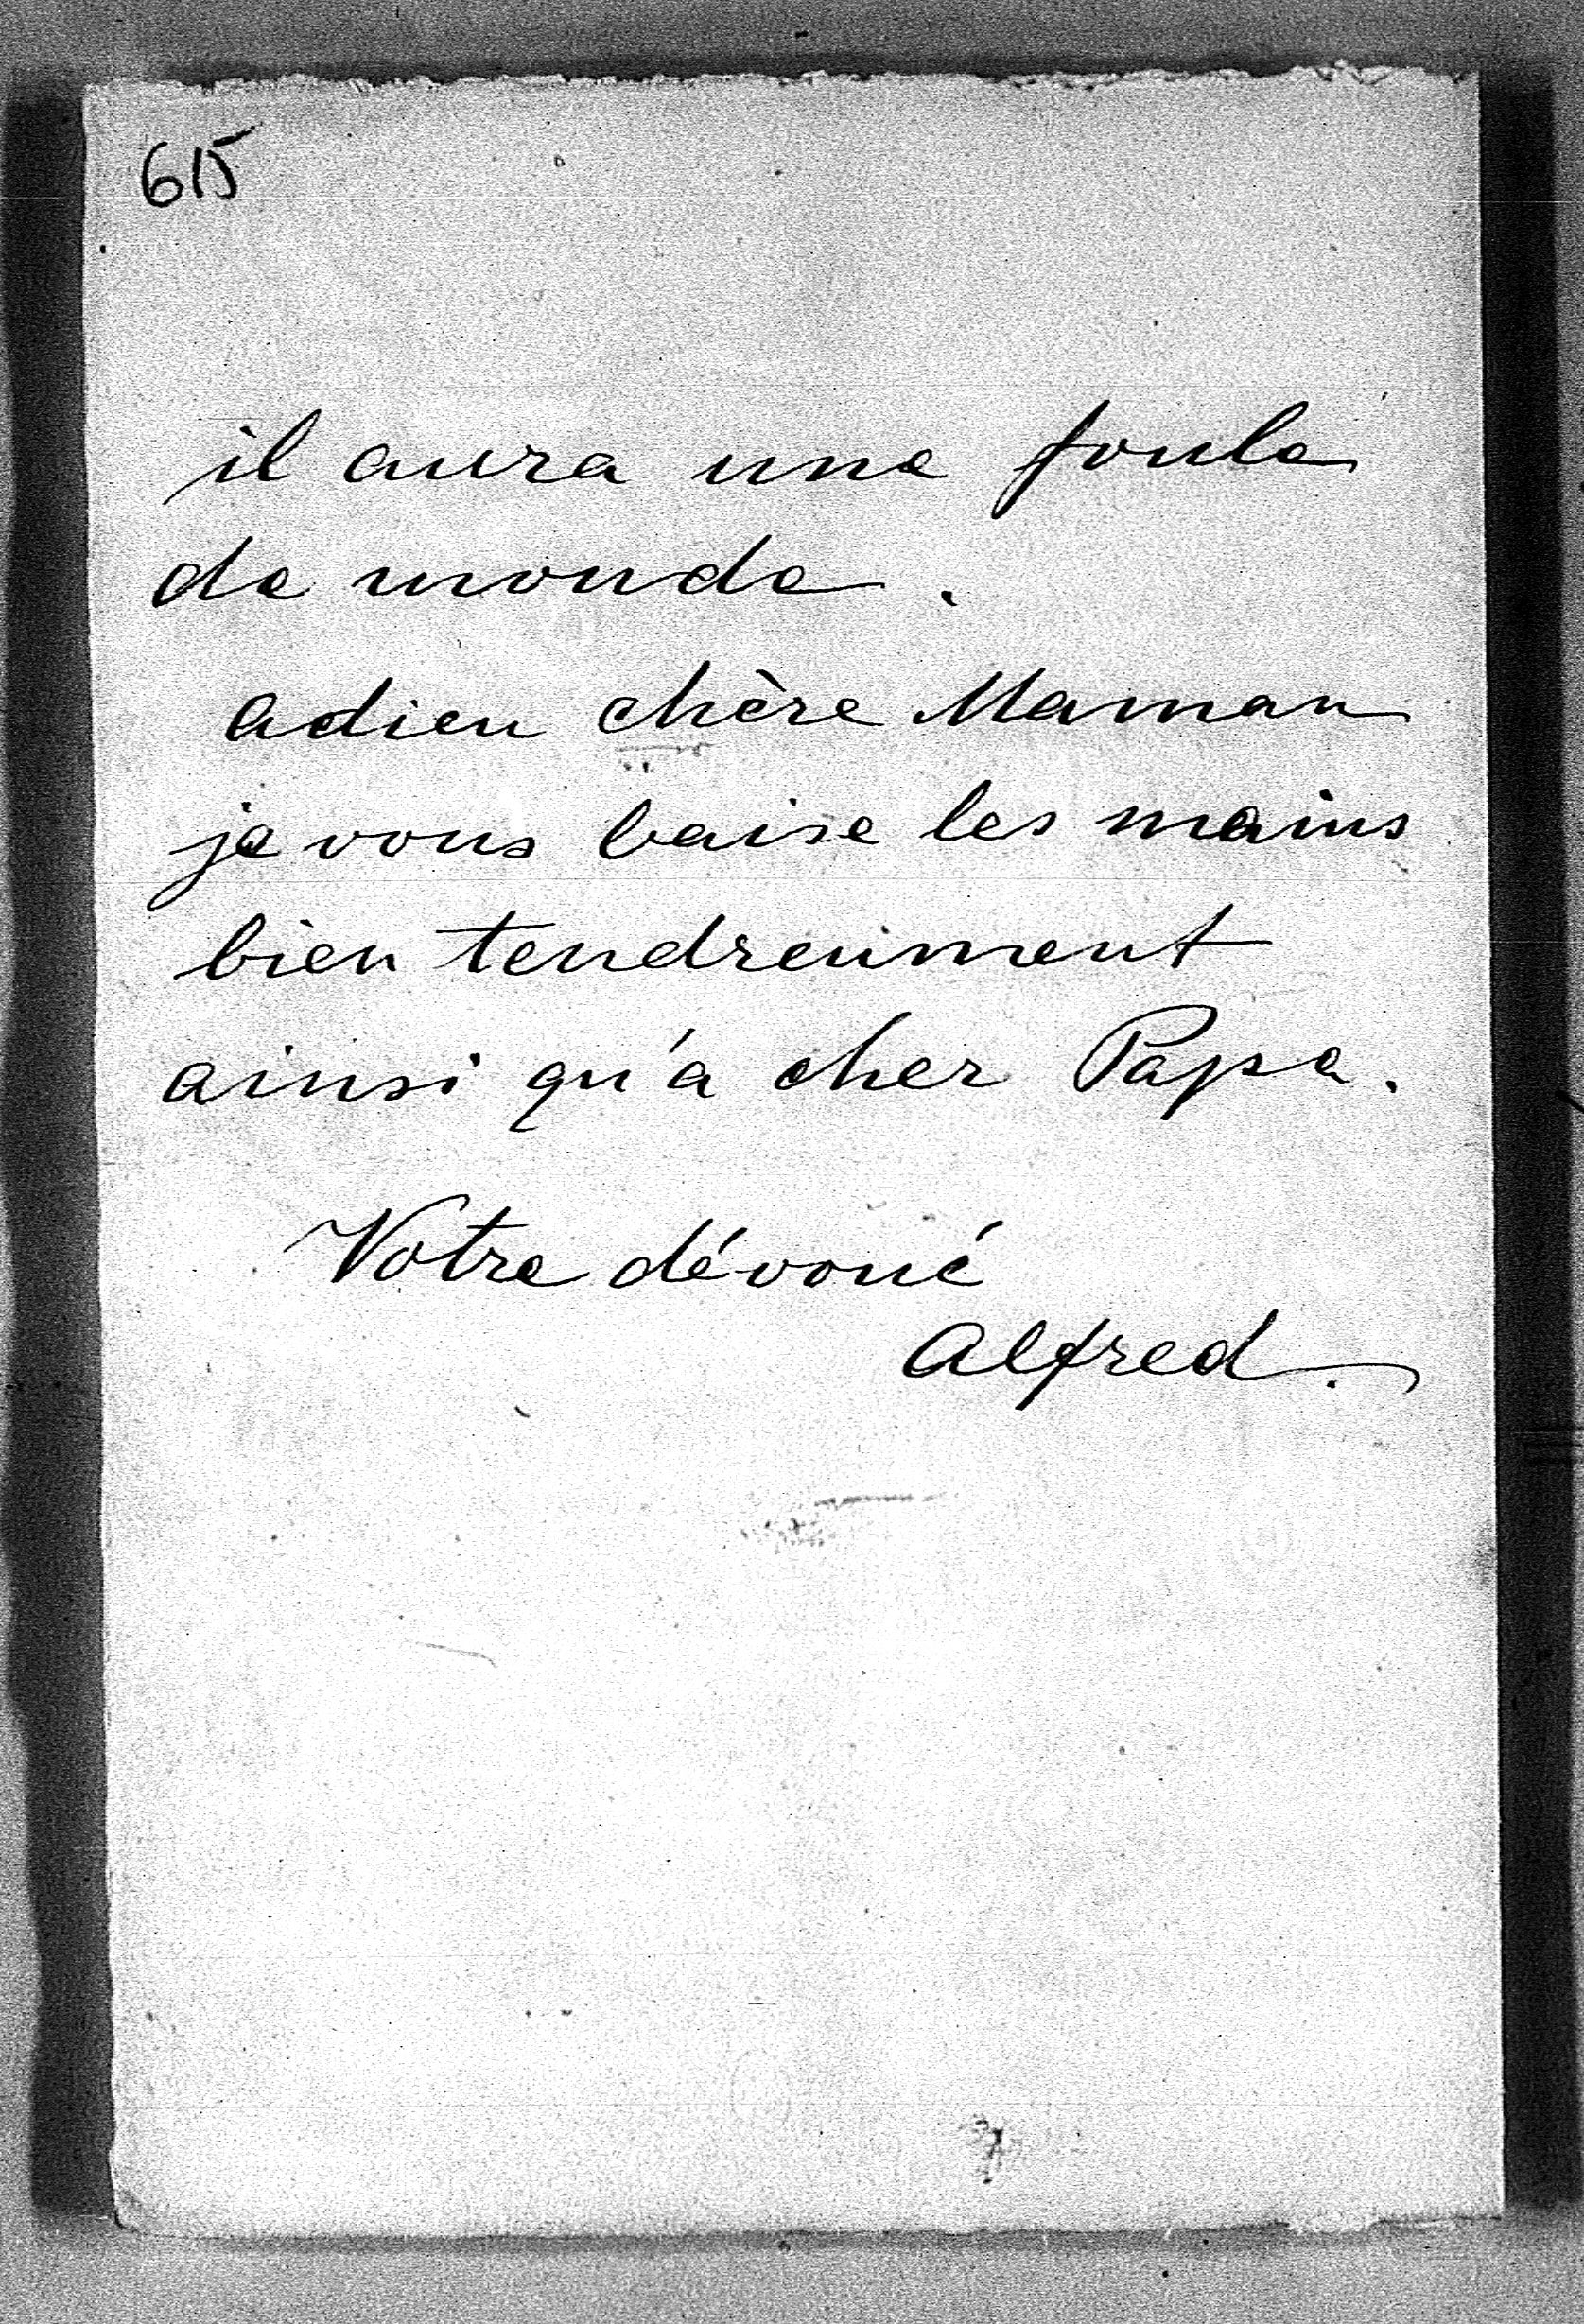 615
il aura une foule
de monde.
Adieu chère Maman
je vous baise les mains
bien tendreument
ainsi qu'à cher Papa.
Votre dévoué
Alfred.